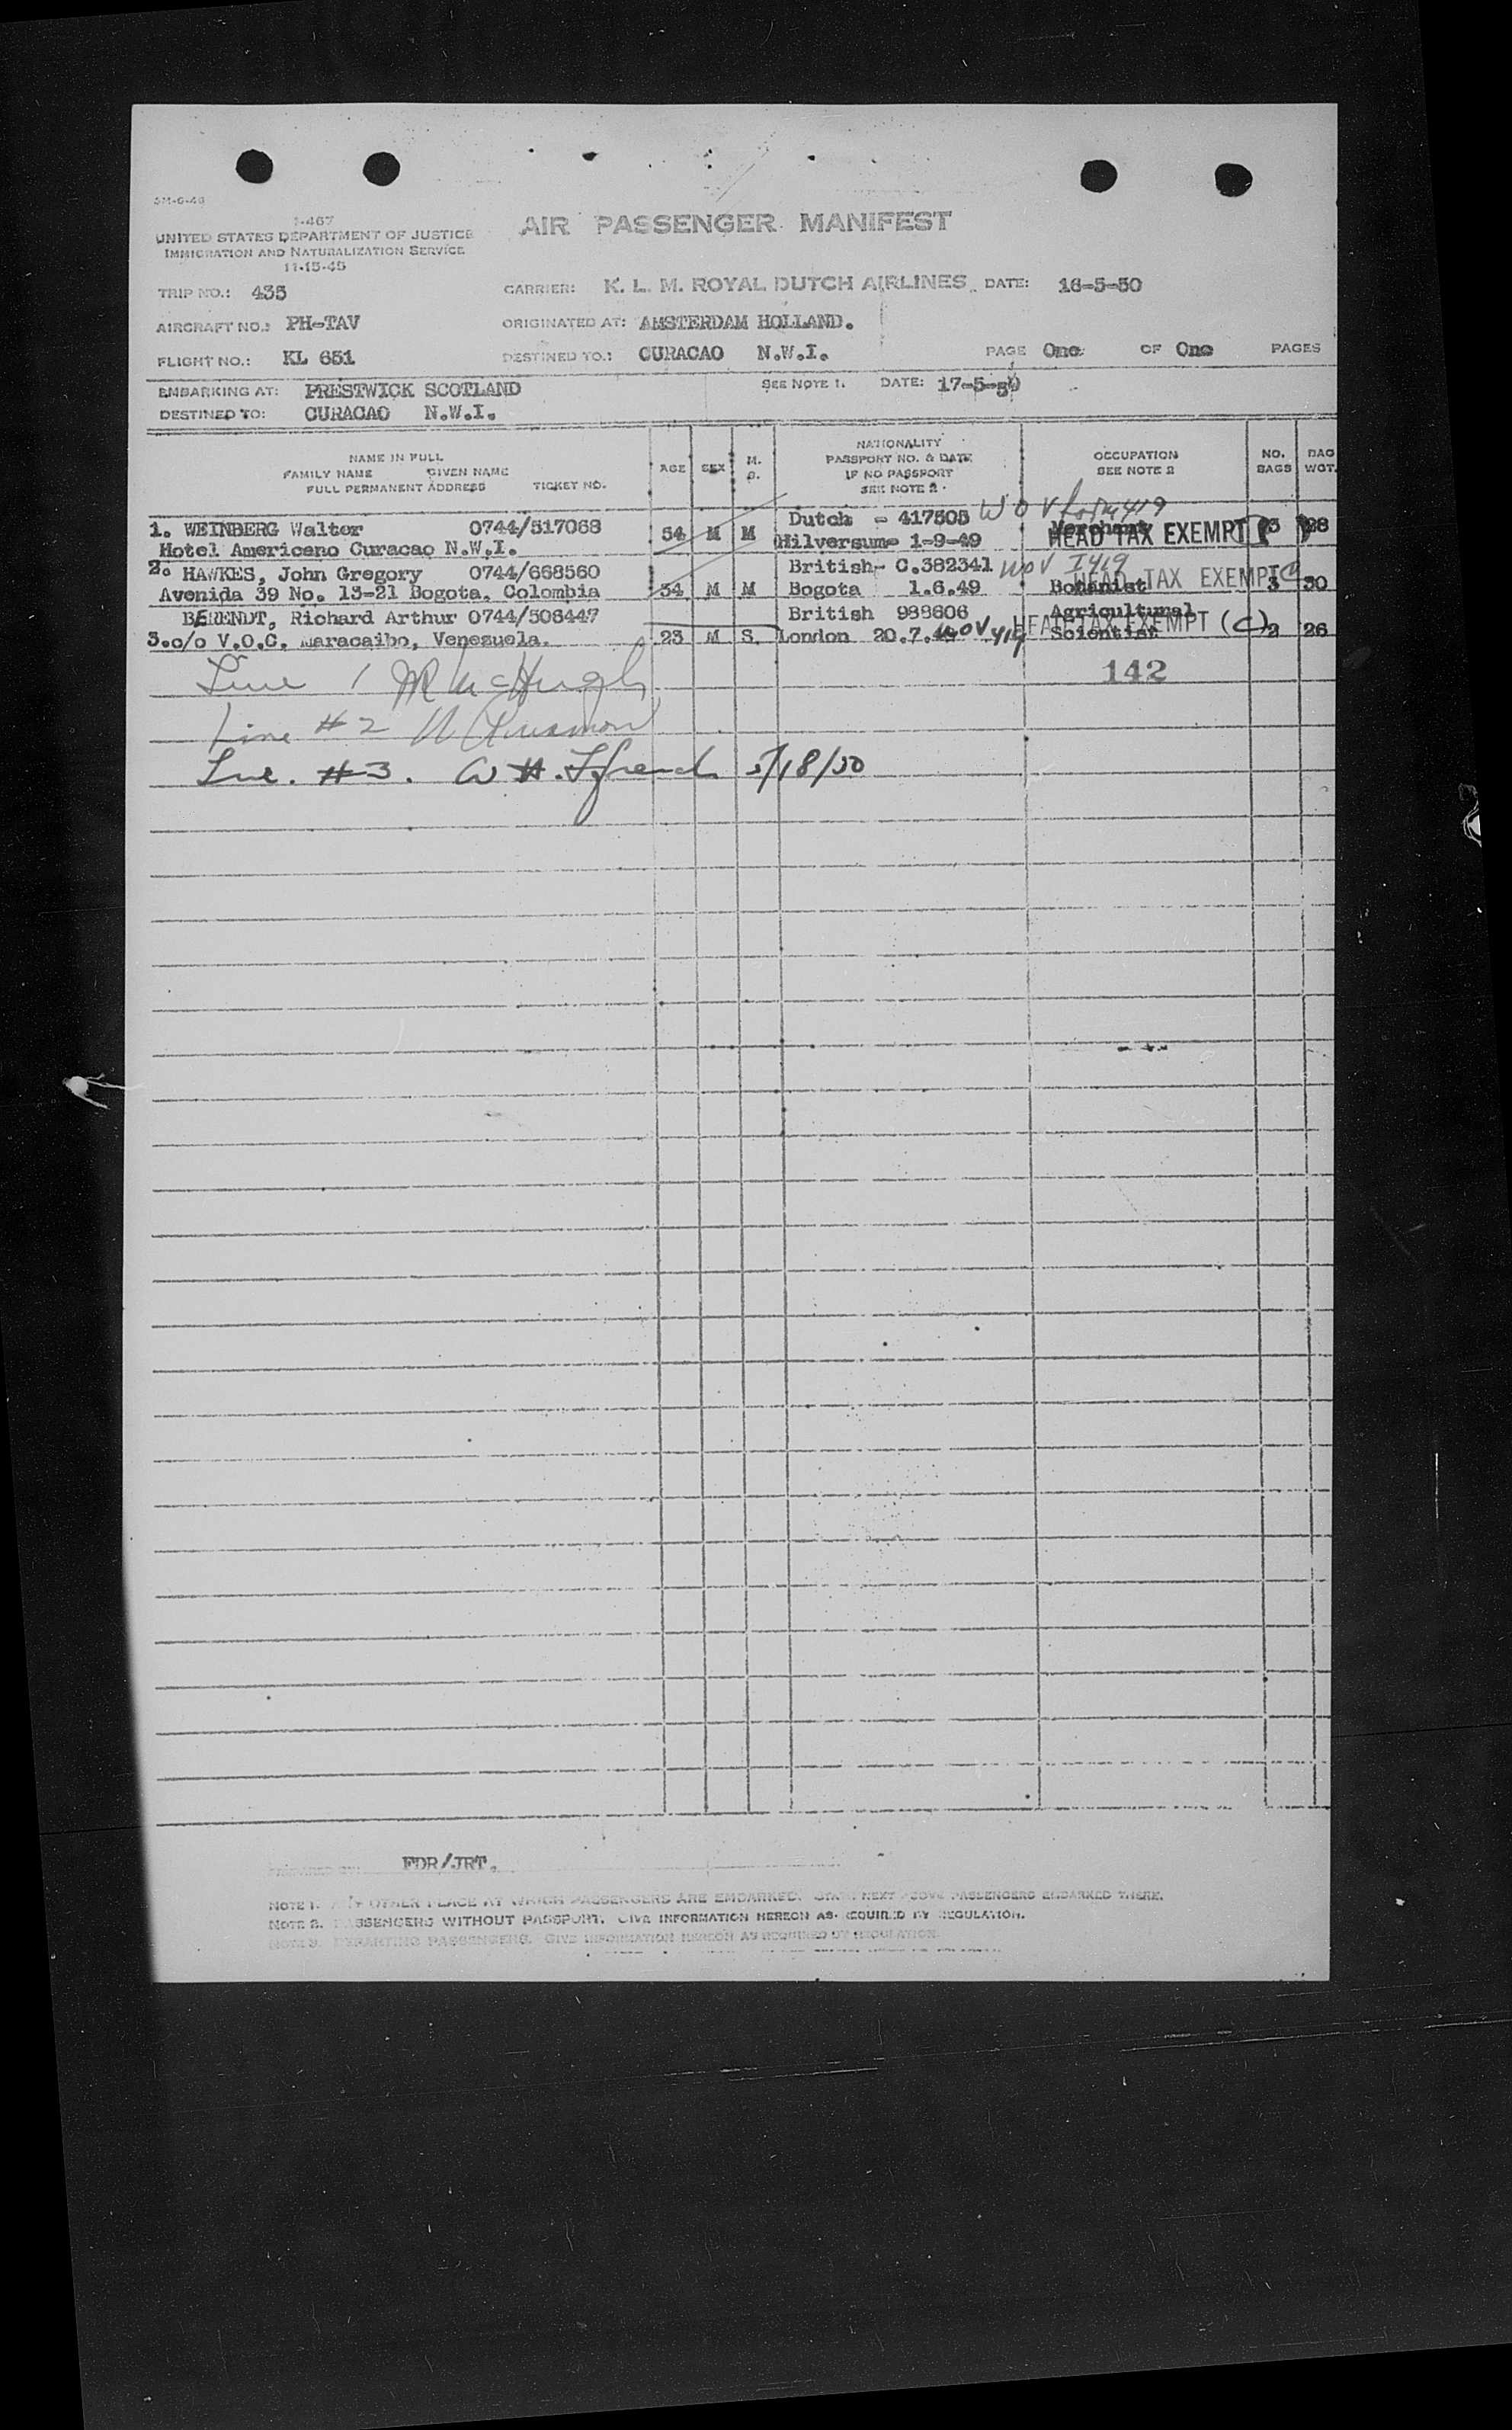 5M-6-49
I-467
UNITED STATES DEPARTMENT OF JUSTICE
IMMIGRATION AND NATURALIZATION SERVICE
11-15-45
AIR PASSENGER MANIFEST
TRIP NO.: 435 CARRIER: K. L. M. ROYAL DUTCH AIRLINES. DATE: 16-5-50
AIRCRAFT NO.: PH-TAV ORIGINATED AT: AMSTERDAM HOLLAND.
FLIGHT NO.: KL 651 DESTINED TO.: CURACAO N.W.I. PAGE One OF One PAGES
EMBARKING AT: PRESTWICK SCOTLAND SEE NOTE 1. DATE: 17-5-50
DESTINED TO: CURACAO N.W.I.
NAME IN FULL
FAMILY NAME GIVEN NAME
FULL PERMANENT ADDRESS TICKET NO.
AGE SEX M. S.
NATIONALITY
PASSPORT NO. & DATE
IF NO PASSPORT
SEE NOTE 2.
OCCUPATION
SEE NOTE 2
NO. BAGS
BAG WGT.
1. WEINBERG Walter 0744/517068 54 M M Dutch - 417505 WOV form 419 Merchant 3 28
Hotel Americano Curacao N.W.I. Hilversum- 1-9-49 HEAD TAX EXEMPT
2. HAWKES, John Gregory 0744/668560 British- C.382341 WOV I419 HEAD TAX EXEMPT C
Avenida 39 No. 13-21 Bogota, Colombia 34 M M Bogota 1.6.49 Botanist 3 30
BERENDT, Richard Arthur 0744/506447 British 988606 Agricultural
3.c/o V.O.C. Maracaibo, Venezuela. 23 M S. London 20.7.49 WOV 419 Scientist HEAD TAX EXEMPT (C) 2 26
Line 1 JR McHugh 142
Line #2
Line. #3. W H. Ffrench 5/18/50
FDR/JRT.
NOTE 1. OTHER PLACE AT WHICH PASSENGERS ARE EMBARKED. NEXT ABOVE PASSENGERS EMBARKED THERE.
NOTE 2. PASSENGERS WITHOUT PASSPORT. GIVE INFORMATION HEREON AS REQUIRED BY REGULATION.
NOTE 3. DEPARTING PASSENGERS. GIVE INFORMATION HEREON AS REQUIRED BY REGULATION.